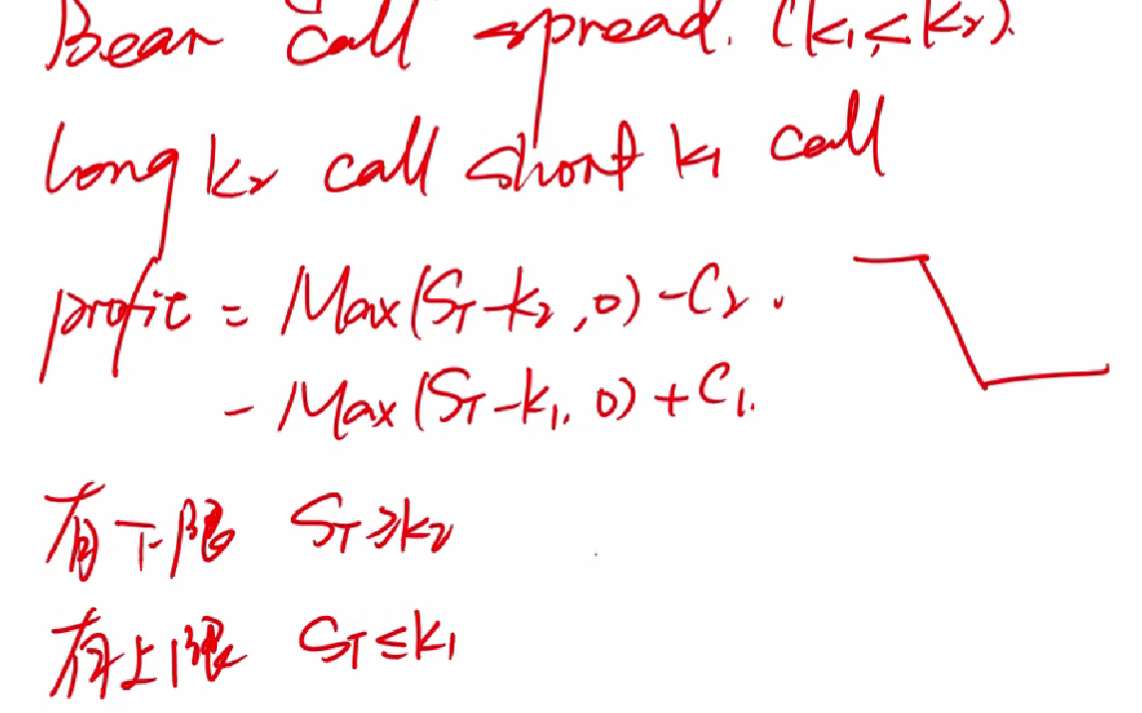 Bear call spread. (k₁<k₂).
long k₂ call short k₁ call
profit = Max(S_T-k₂,0)-C₂.
- Max(S_T-k₁,0)+C₁.
有下限 S_T≥k₂
有上限 S_T≤k₁